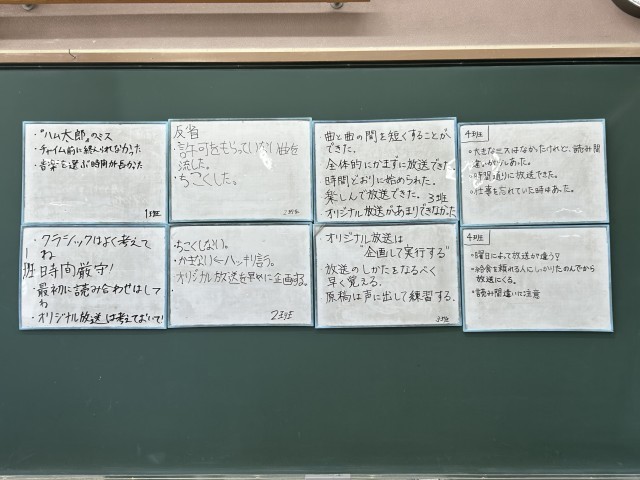 ・"ハム太郎"のミス
・チャイム前に終えられなかった
・音楽を選ぶ時間が長かった
1班
反省
・許可をもらっていない曲を
流した。
・ちこくした。
2班
曲と曲の間を短くすることが
できた。
全体的にかまずに放送できた。
時間どおりに始められた。
楽しんで放送できた。 3班
オリジナル放送があまりできなかった
4班
・大きなミスはなかったけれど、読み間
違いがけっこうあった。
・時間通りに放送できた。
・仕事を忘れていた時があった。
1班
・クラシックはよく考えて
ね
・時間厳守!
・最初に読み合わせはして
ね
・オリジナル放送は考えておいて!
ちこくしない。
・かまない←ハッキリ言う。
オリジナル放送を早めに企画する。
2班
・オリジナル放送は
"企画して実行する"
放送のしかたをなるべく
早く覚える。
原稿は声に出して練習する。
3班
4班
・曜日によって放送が違う?
・給食を頼れる人にしっかりたのんでから
放送にくる。
・読み間違いに注意